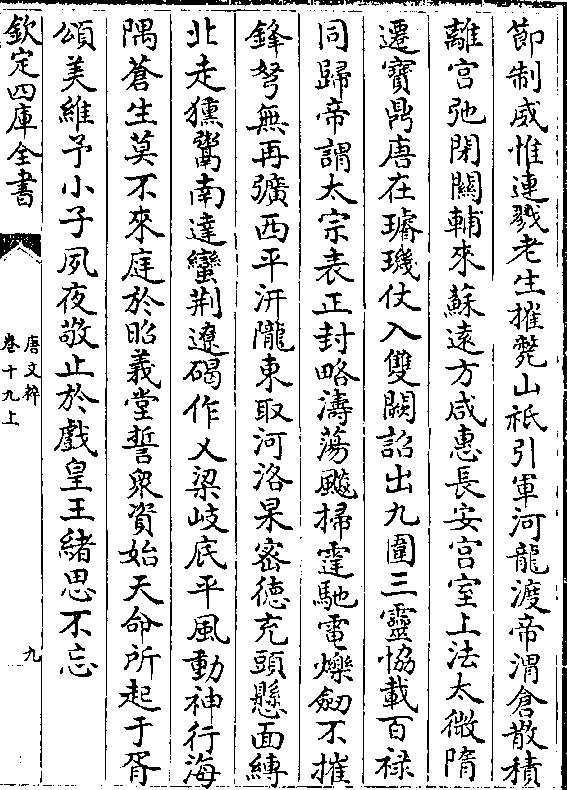 節制咸惟連戮老生摧斃山祇引軍河龍渡帝渭倉散積
離宫弛閉關輔來蘇遠方咸惠長安宫室上法太微隋
遷寶鼎唐在璿璣仗入雙闕詔出九圍三靈協載百禄
同歸帝謂太宗表正封略濤蕩飈掃霆馳電爍劒不摧
鋒弩無再彍西平汧隴東取河洛杲密德充頭懸面縛
北走獯鬻南達蠻荆遼碣作乂梁岐底平風動神行海
隅蒼生莫不來庭於昭義堂誓衆資始天命所起于胥
頌美維予小子夙夜敬止於戲皇王緒思不忘
欽定四庫全書
唐文粹
卷十九上
九